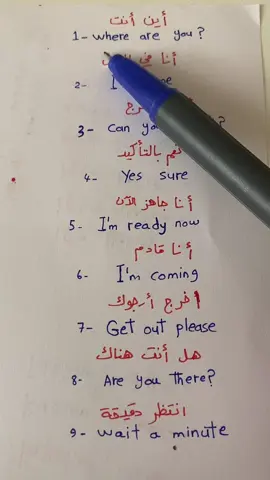 أين أنت
1- where are you ?
أنا في
2- I
3- Can you ?
نعم بالتأكيد
4- Yes sure
أنا جاهز الآن
5- I'm ready now
أنا قادم
6- I'm coming
اخرج أرجوك
7- Get out please
هل أنت هناك
8- Are you there?
انتظر دقيقة
9- wait a minute